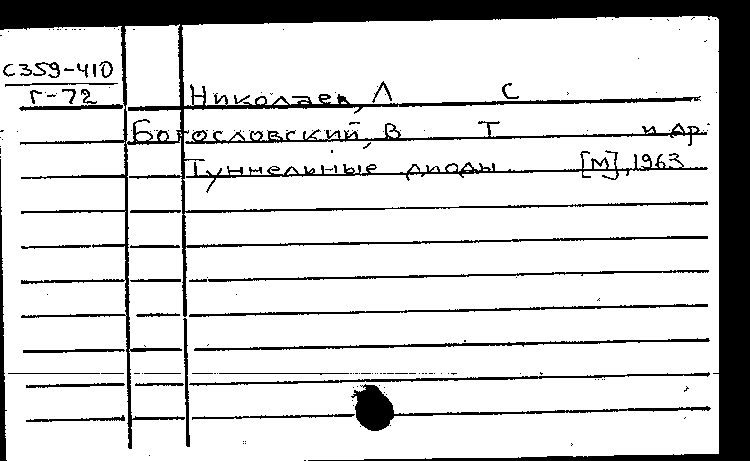 С359-410
Г-72
Николаев, Л С
Богословский, В Т и др.
Туннельные диоды. [М], 1963